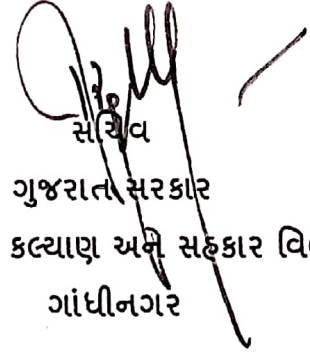 સચિવ
ગુજરાત સરકાર
કલ્યાણ અને સહકાર
ગાંધીનગર